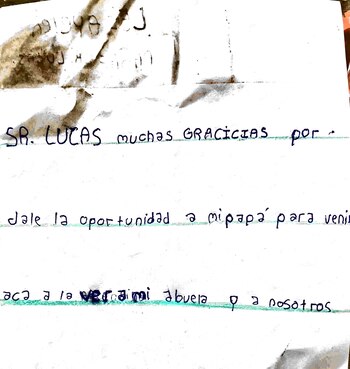 SR. LUCAS muchas GRACICIAS por
dale la oportunidad a mi papá para venir
aca a la ver a mi abuela y a nosotros